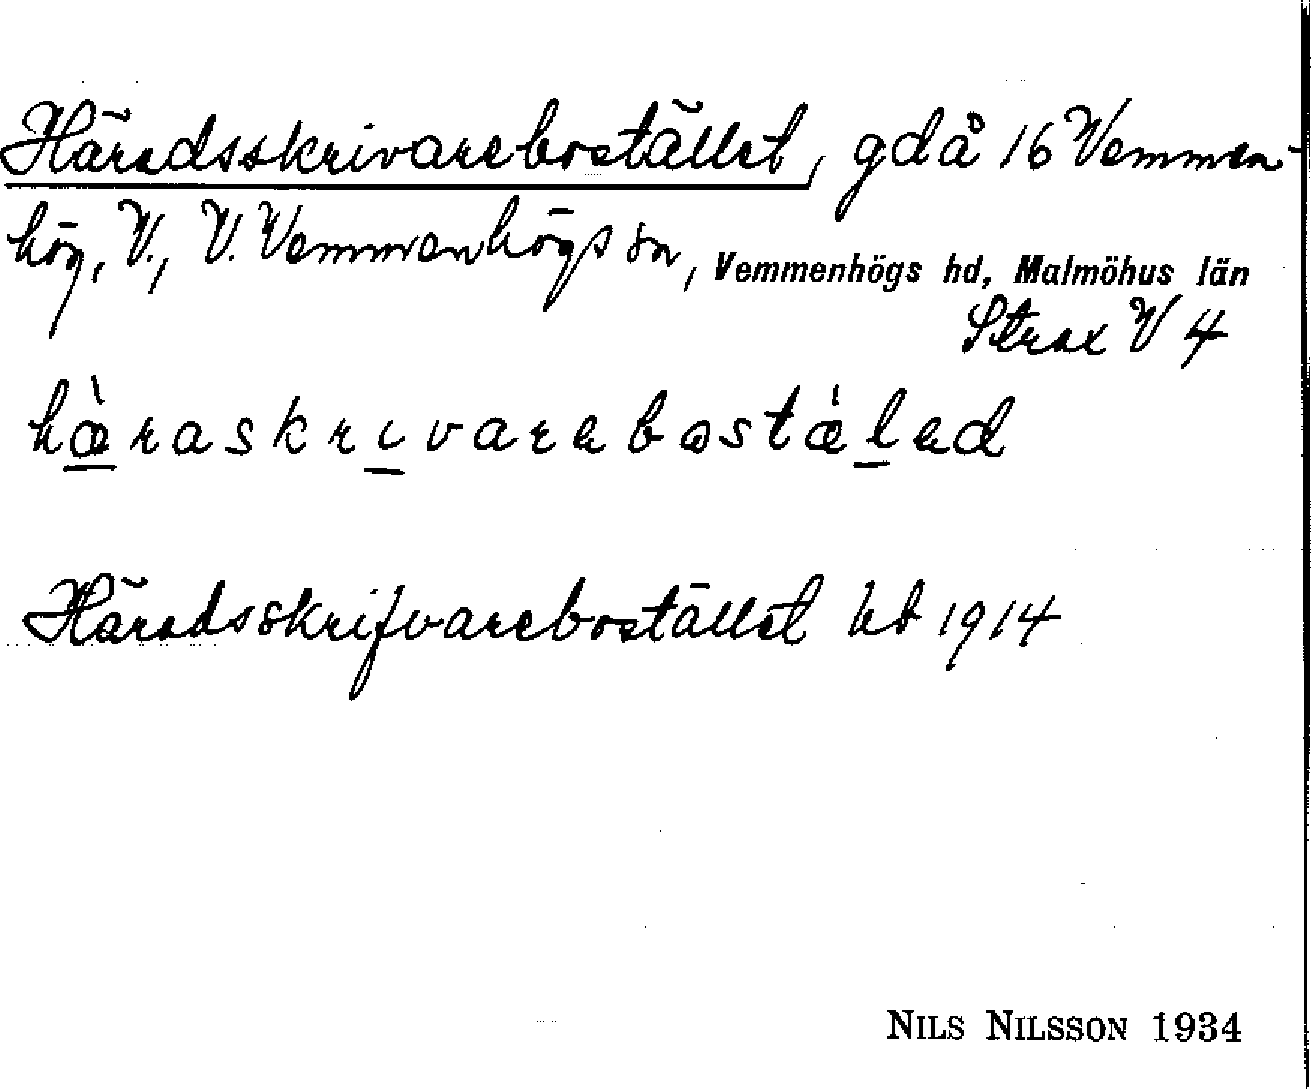 Häradsskrivarebostället, gd å 16 Vemmen-
hög, V., V. Vemmenhögs sn, Vemmenhögs hd, Malmöhus län
Strax V 4
hæ̀raskrivarebostæ̀led
Häradsskrifvarebostället 1914
NILS NILSSON 1934